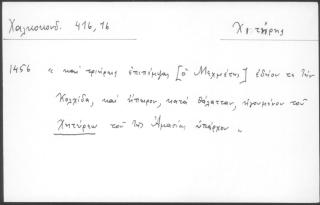 Χαλκοκονδ. 416,16
Χιτήρης
1456 « καὶ τριήρεις ἐπιπέμψας [ὁ Μεχμέτης] ἐδῄου τε τὴν
Κολχίδα, καὶ ἤπειρον, κατὰ θάλατταν, ἡγουμένου τοῦ
Χητύρεω τοῦ τῆς Ἀμασίας ὑπάρχου »